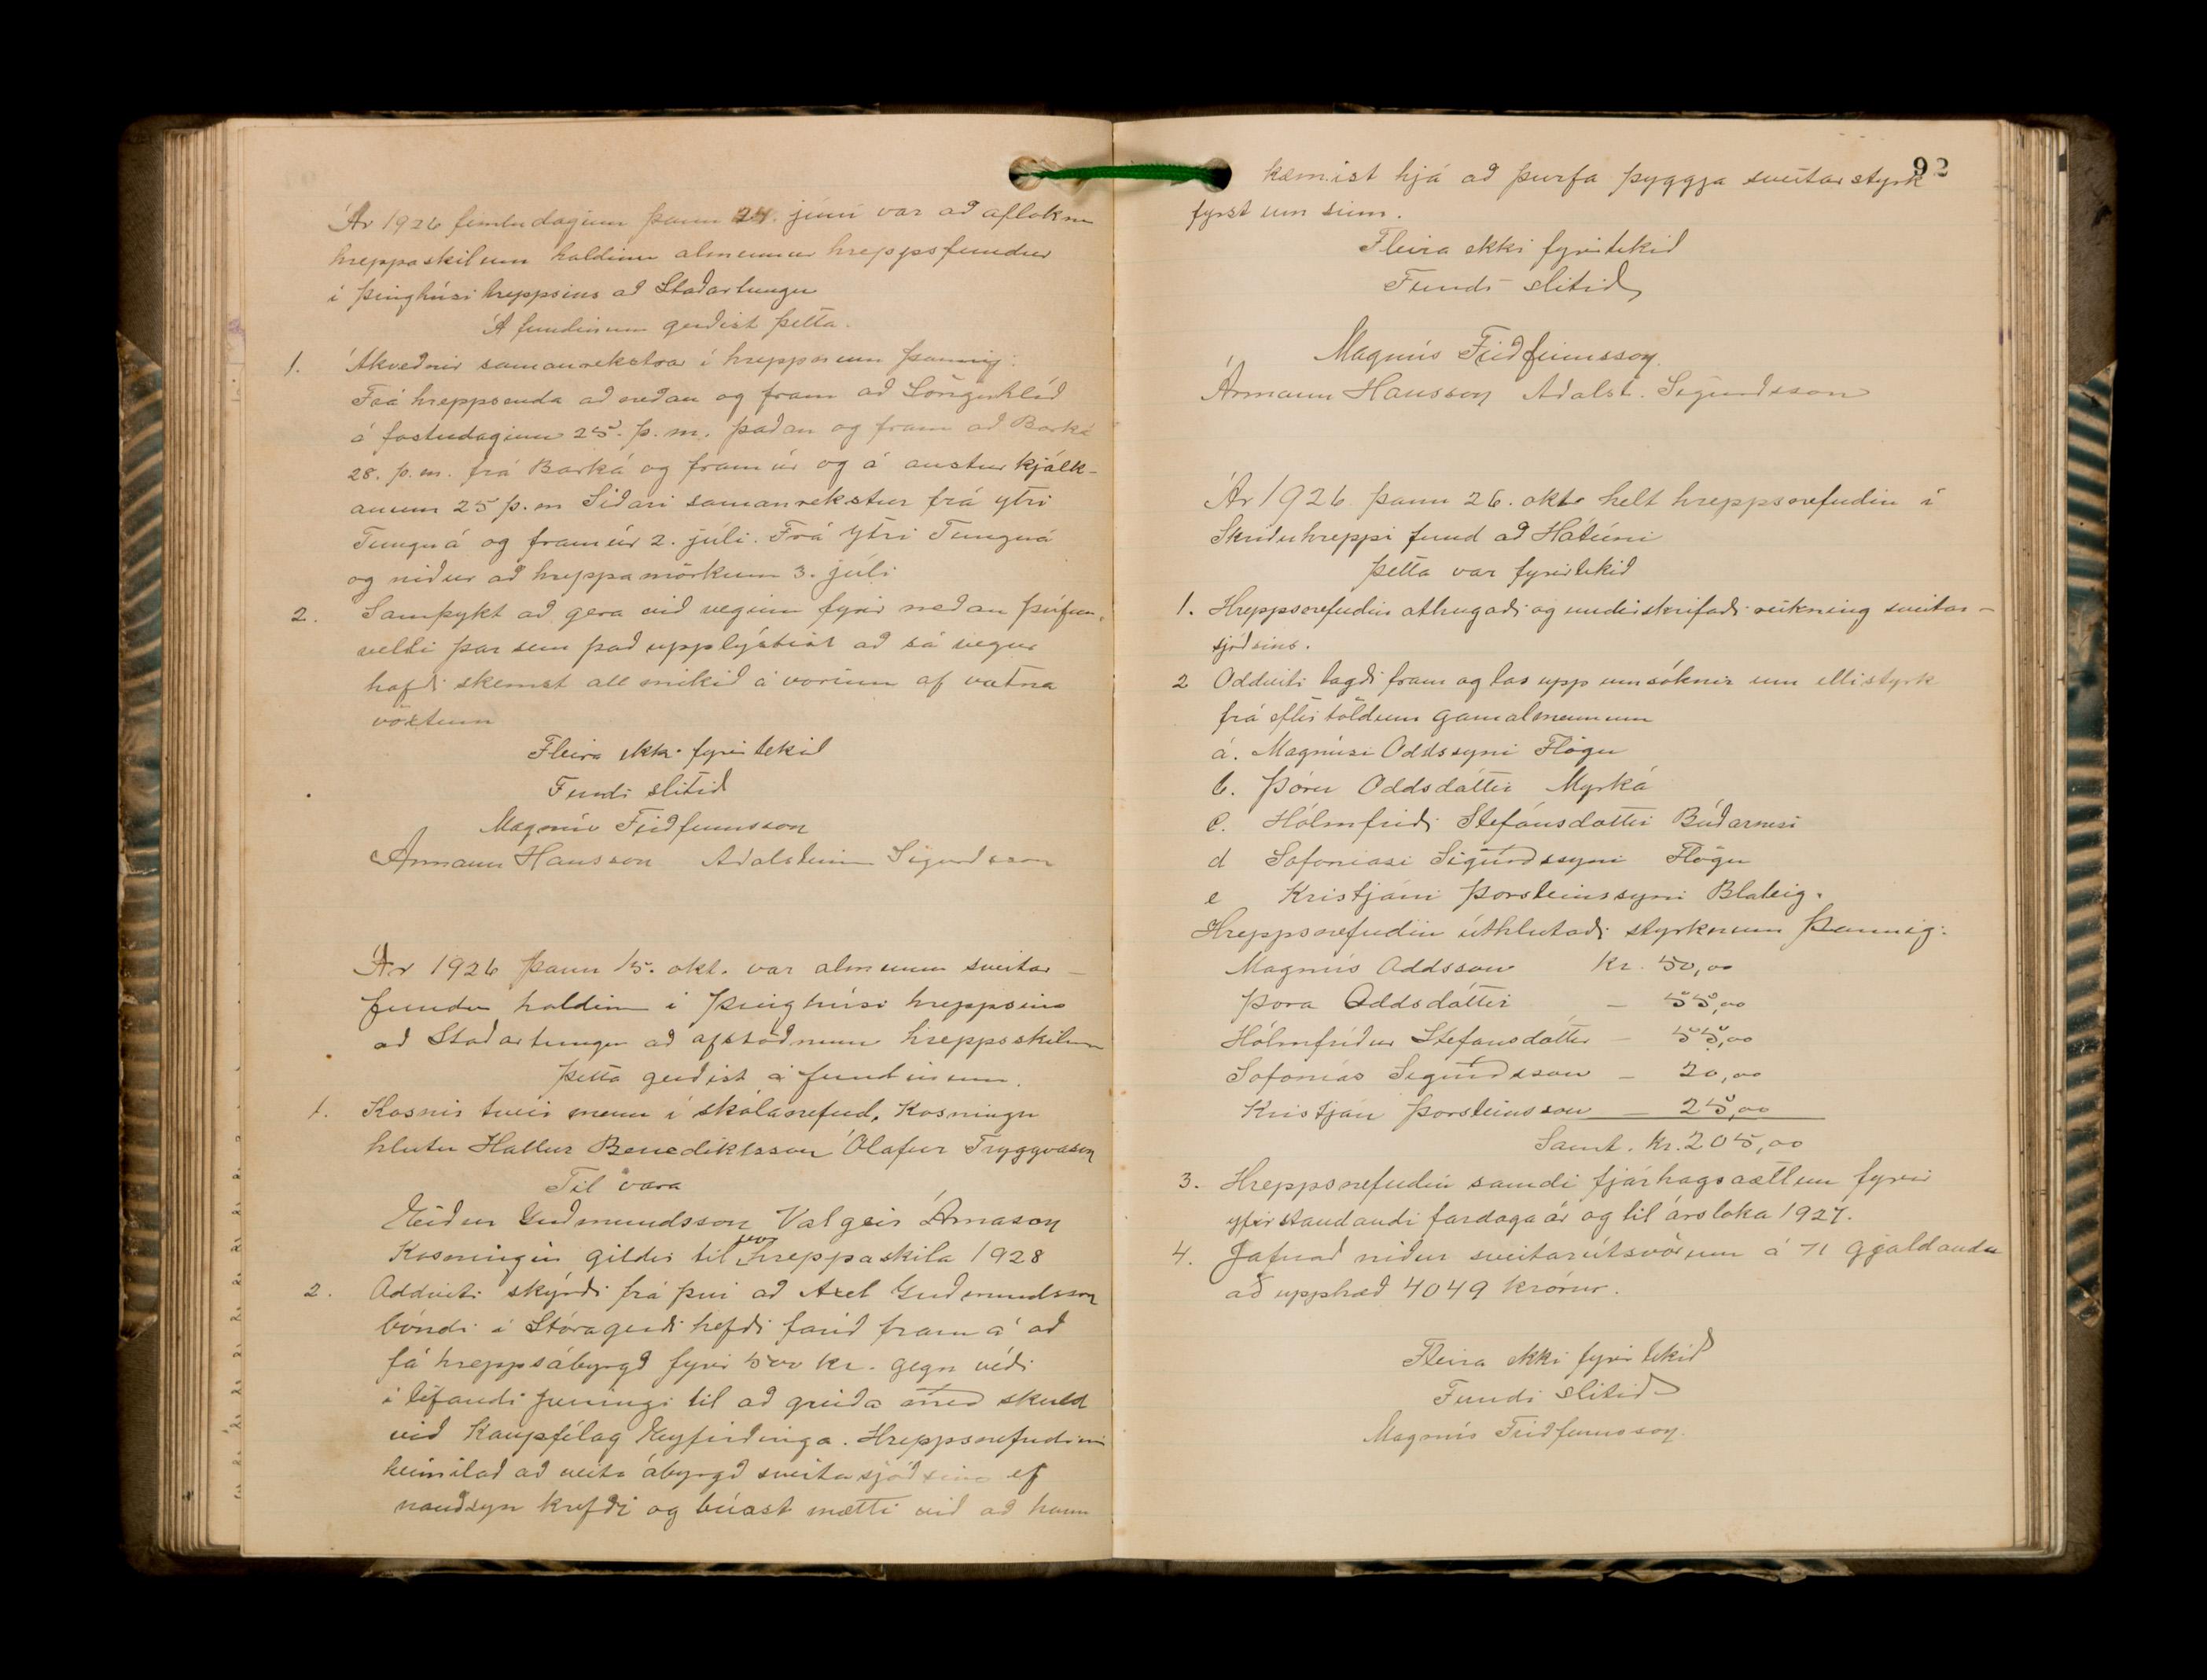 Ár 1926 fimtudaginn þann 24. júní var að afloknu
hreppaskilum haldinn almennur hreppsfundur
í þinghúsi hreppsins að Staðartungu
Á fundinum gerðist þetta.
1. Ákveðnir samanrekstrar í hreppnum þannig:
Frá hreppsenda að neðan og fram að Lönguhlíð
á föstudaginn 25. þ. m. þaðan og fram að Barká
28. þ. m. frá Barká og framúr og á austurkjálk-
anum 25 þ. m Síðari samanrekstur frá ytri
Tunguá og framúr 2. júlí. Frá ytri Tunguá
og niður að hreppamörkum 3. júlí
2. Samþykt að gera við veginn fyrir neðan Þúfna,
velli þar sem það upplýstist að sá vegur
hafði skemst all mikið á vorinu af vatna
vöxtum
Fleira ekki fyrirtekið
Fundi slitið
Magnús Friðfinnsson
Ármann Hansson Aðalsteinn Sigurðsson
Ár 1926 þann 15. okt. var almennur sveitar-
fundur haldinn í þinghúsi hreppsins
að Staðartungu að afstöðnum hreppsskilum
Þetta gerðist á fundinum.
1. Kosnir tveir menn í skólanefnd. Kosningu
hlutu Hallur Benediktsson Ólafur Tryggvason
Til vara
Eiður Guðmundsson Valgeir Árnason
Kosningin gildir til vor hreppaskila 1928
2. Oddviti skýrði frá því að Axel Guðmundsson
bóndi í Stóragerði hefði farið fram á að
fá hreppsábyrgð fyrir 500 kr. gegn veði
í lifandi peningi til að greiða með skuld
við Kaupfélag Eyfirðinga. Hreppsnefndinni
heimilað að veita ábyrgð sveitasjóðsins ef
nauðsyn krefði og búast mætti við að hann
92
kæmist hjá að þurfa þyggja sveitarstyrk
fyrst um sinn.
Fleira ekki fyrirtekið
Fundi slitið
Magnús Friðfinnsson
Ármann Hansson Aðalst. Sigurðsson
Ár 1926 þann 26. okt. helt hreppsnefndin í
Skriðuhreppi fund að Hátúni
Þetta var fyrirtekið
1. Hreppsnefndin athugaði og underskrifaði reikning sveitar-
sjóðsins.
2 Oddviti lagði fram og las upp umsóknir um ellistyrk
frá eftirtöldum gamalmennum
á. Magnúsi Oddssyni Flögu
b. Þóru Oddsdóttir Myrká
c. Hólmfríði Stefánsdóttir Búðarnesi
d Sofoníasi Sigurðssyni Flögu
e Kristjáni Þorsteinssyni Blateig.
Hreppsnefndin úthlutaði styrknum þannig:
Magnús Oddsson Kr. 50,00
Þora Oddsdóttir — 55,00
Hólmfríður Stefansdóttir — 55,00
Sofonías Sigurðsson — 20,00
Kristján Þorsteinsson — 25,00
Samt. Kr. 205,00
3. Hreppsnefndin samdi fjárhagsáætlun fyrir
yfirstandandi fardagaár og til ársloka 1927.
4. Jafnað niður sveitarútsvörum á 71 gjaldanda
að upphæð 4049 krónur.
Fleira ekki fyrirtekið
Fundi slitið
Magnús Friðfinnsson.